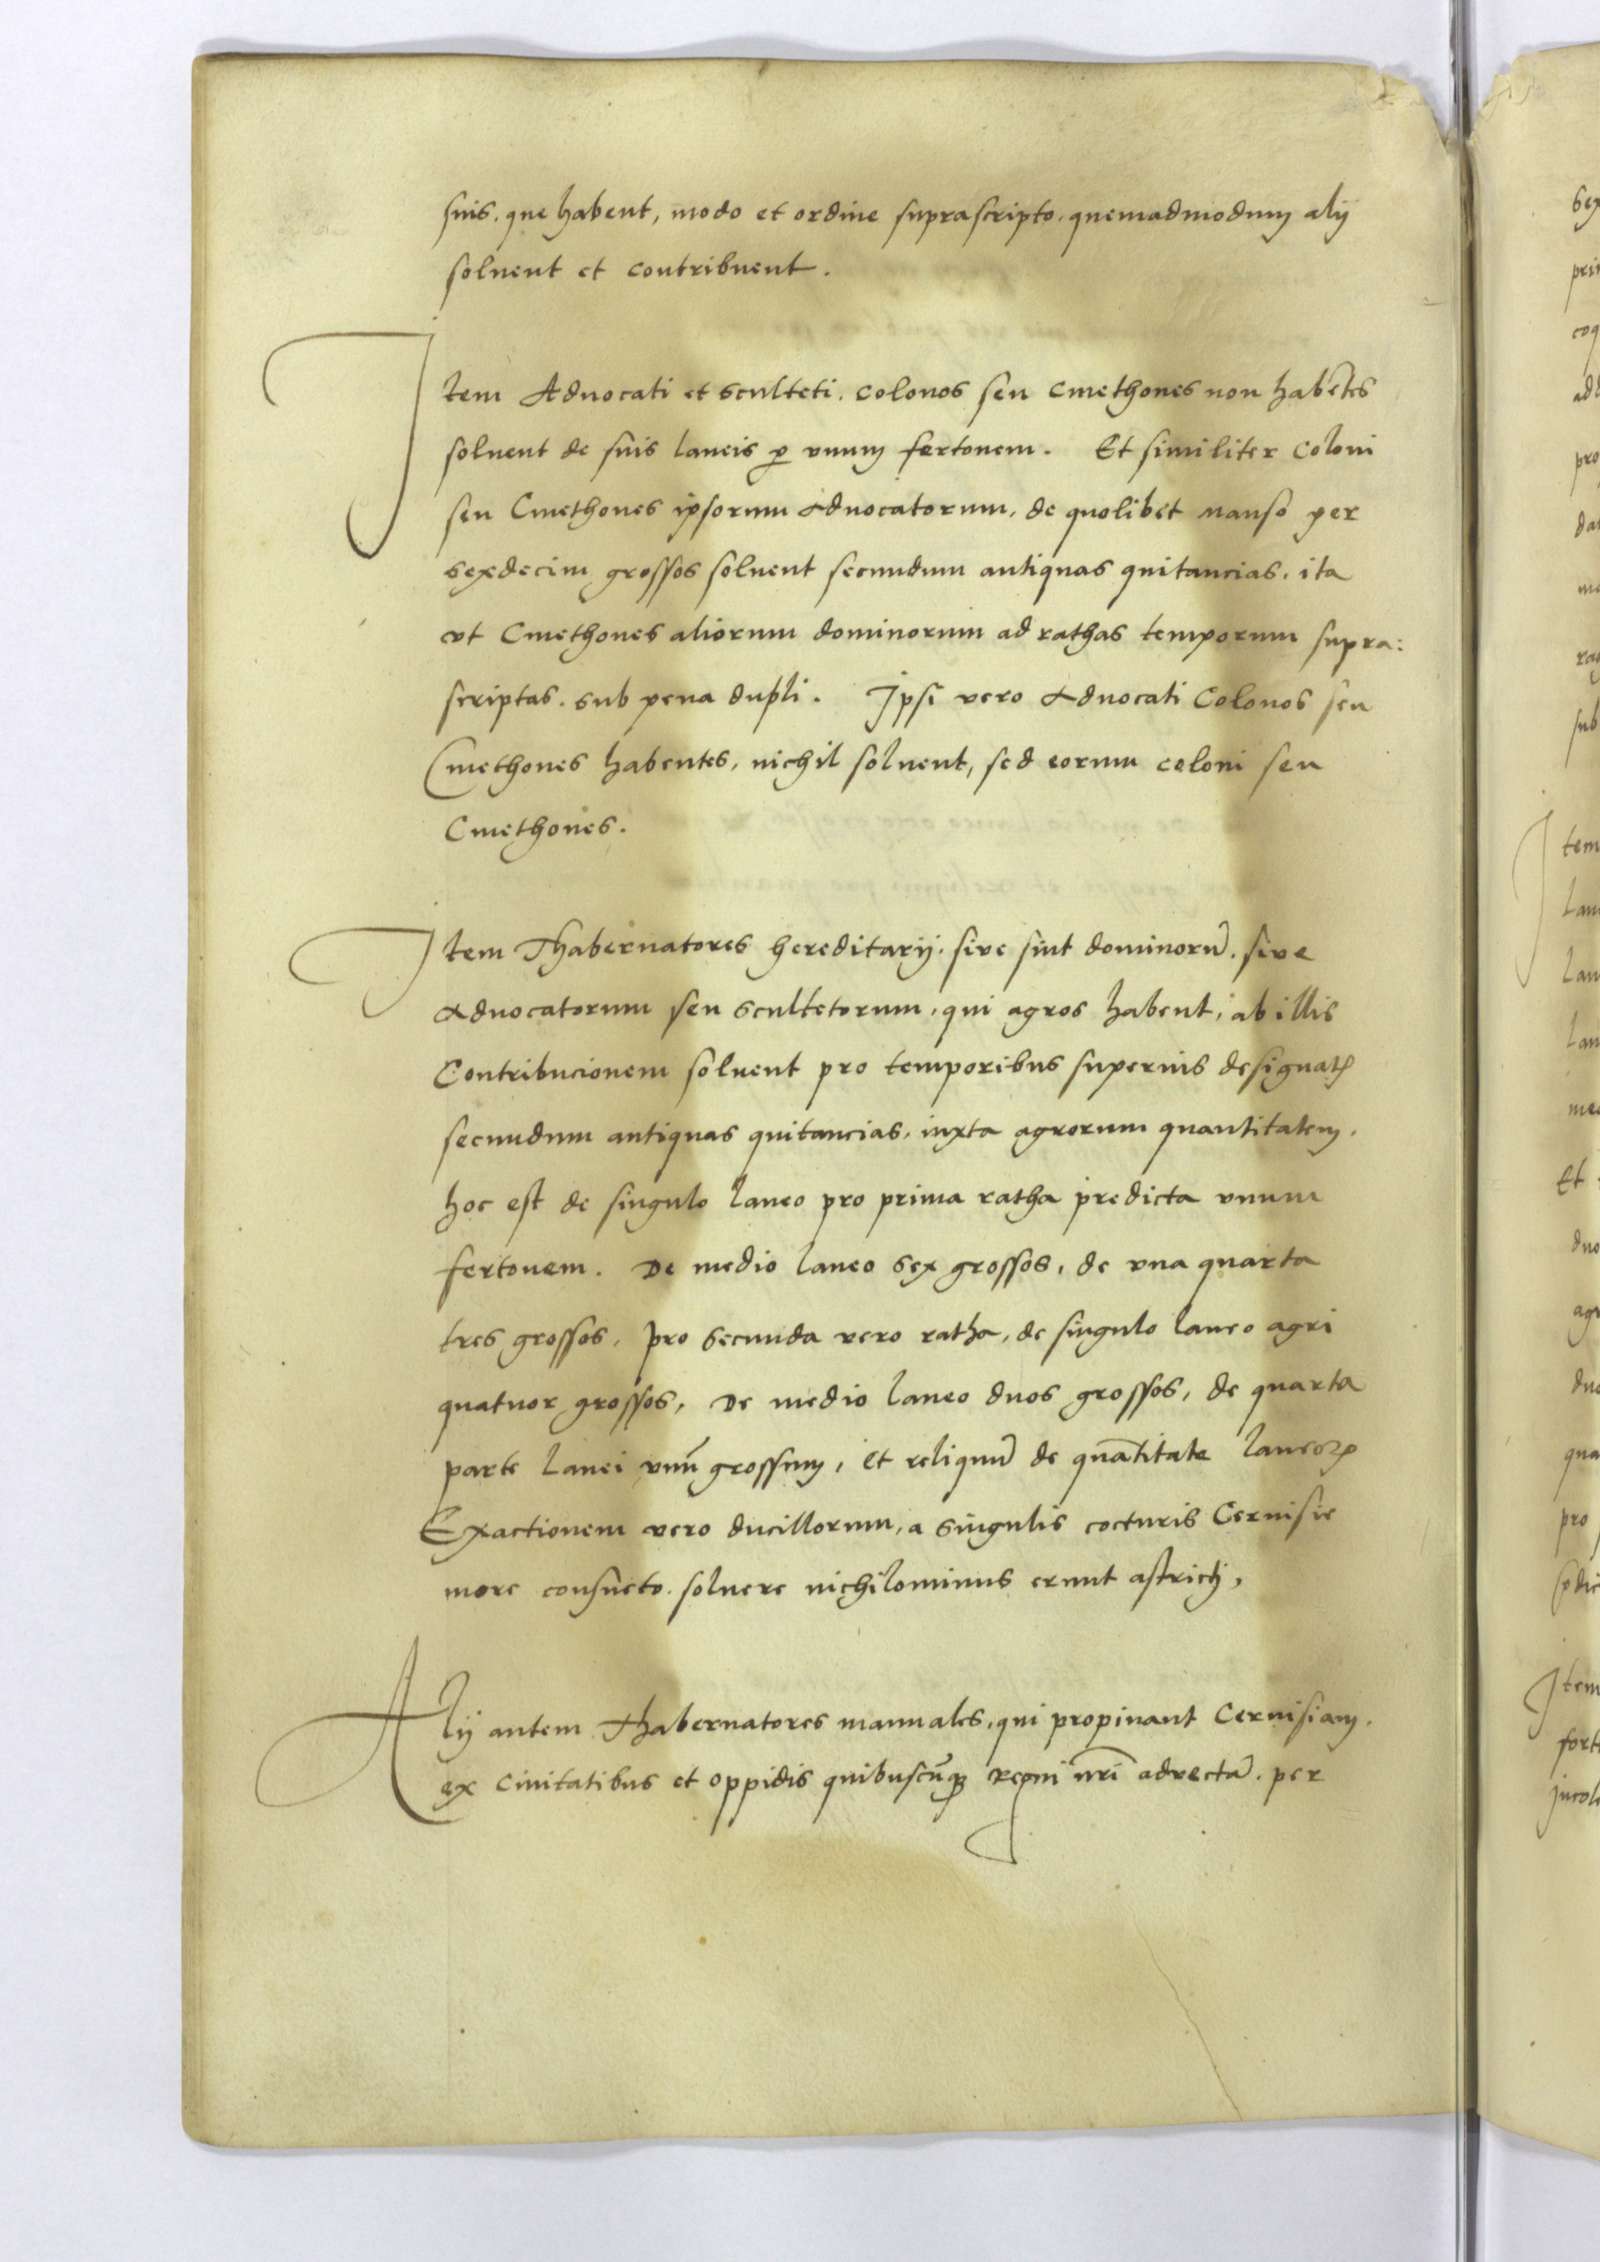 suis. que habent, modo et ordine suprascripto. quemadmodum alij
soluent et contribuent.
Item Aduocati et sculteti. colonos seu cmethones non habẽtes
soluent de suis laneis ꝑ vnum fertonem. Et similiter Coloni
seu Cmethones ipsorum aduocatorum, de quolibet manso per
sexdecim grossos soluent secundum antiquas quitancias. ita
vt Cmethones aliorum dominorum ad rathas temporum supra:
scriptas. sub pena dupli. Ipsi vero aduocati Colonos seu
Cmethones habentes, nichil soluent, sed eorum coloni seu
Cmethones.
Item Thabernatores hereditarij. sive sint dominorũ. sive
aduocatorum seu scultetorum, qui agros habent, ab illis
Contribucionem soluent pro temporibus superius designatꝭ
secundum antiquas quitancias, iuxta agrorum quantitatem.
hoc est de singulo laneo pro prima ratha predicta vnum
fertonem. De medio laneo sex grossos, de vna quarta
tres grossos. pro secunda vero ratha, de singulo laneo agri
quatuor grossos, De medio laneo duos grossos, de quarta
parte lanei vnũ grossum, et reliquũ de quãtitate laneoꝝ
Exactionem vero ducillorum, a singulis cocturis Ceruisie
more consueto. soluere nichilominus erunt astricti,
Alij autem Thabernatores manuales, qui propinant Ceruisiam.
ex Ciuitatibus et oppidis quibuscũqꝫ Regni nr̃i advectã. per
sub
Item
Et
pro
Item